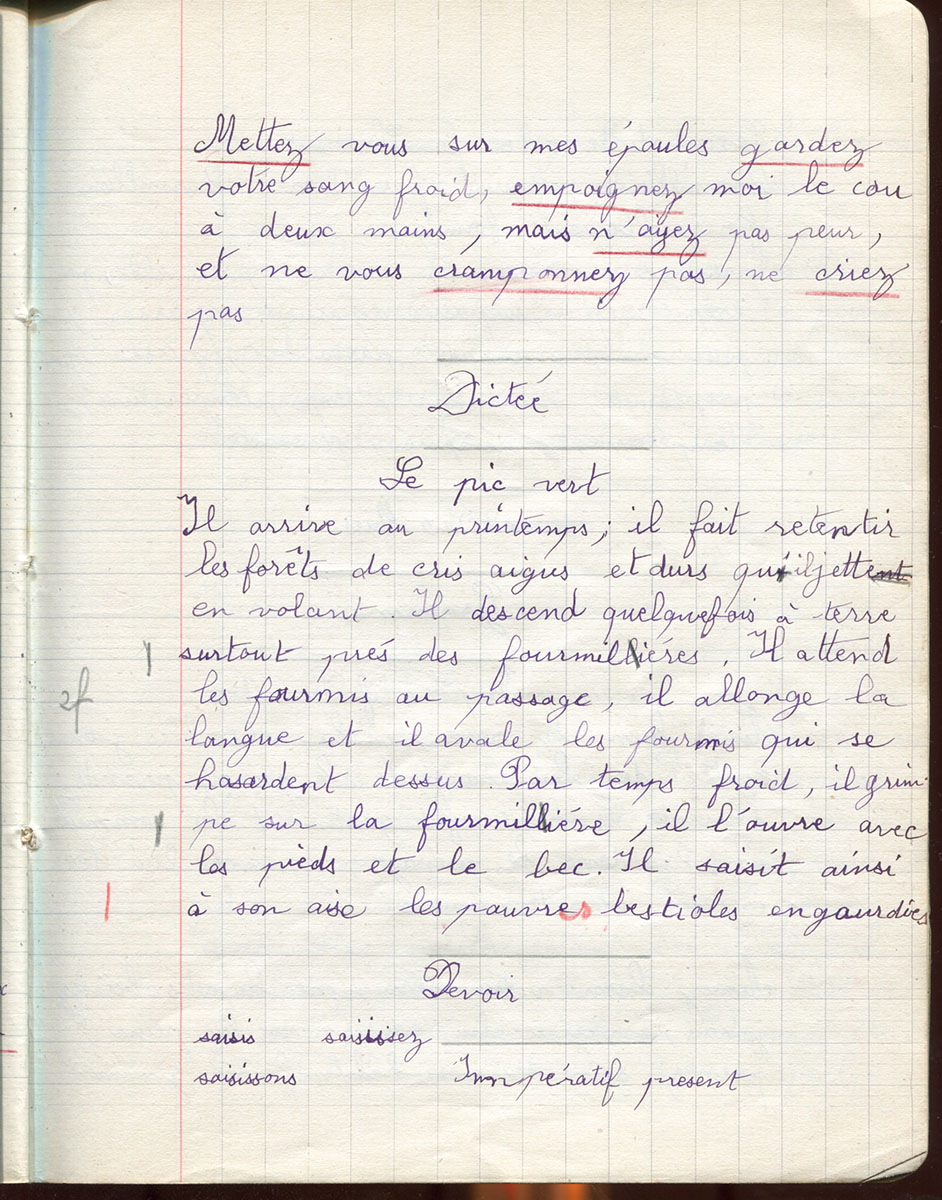 Mettez vous sur mes épaules gardez
votre sang froid, empoignez moi le cou
à deux mains, mais n'ayez pas peur,
et ne vous cramponnez pas, ne criez
pas
Dictée
Le pic vert
Il arrive au printemps; il fait retentir
les forêts de cris aigus et durs qu'il jettent
en volant. Il descend quelquefois à terre
surtout prés des fourmilliéres. Il attend
2f les fourmis au passage, il allonge la
langue et il avale les fourmis qui se
hasardent dessus. Par temps froid, il grim-
pe sur la fourmilliére, il l'ouvre avec
les pieds et le bec. Il saisit ainsi
à son aise les pauvres bestioles engourdies
Devoir
saisis saisissez
saisissons Impératif present